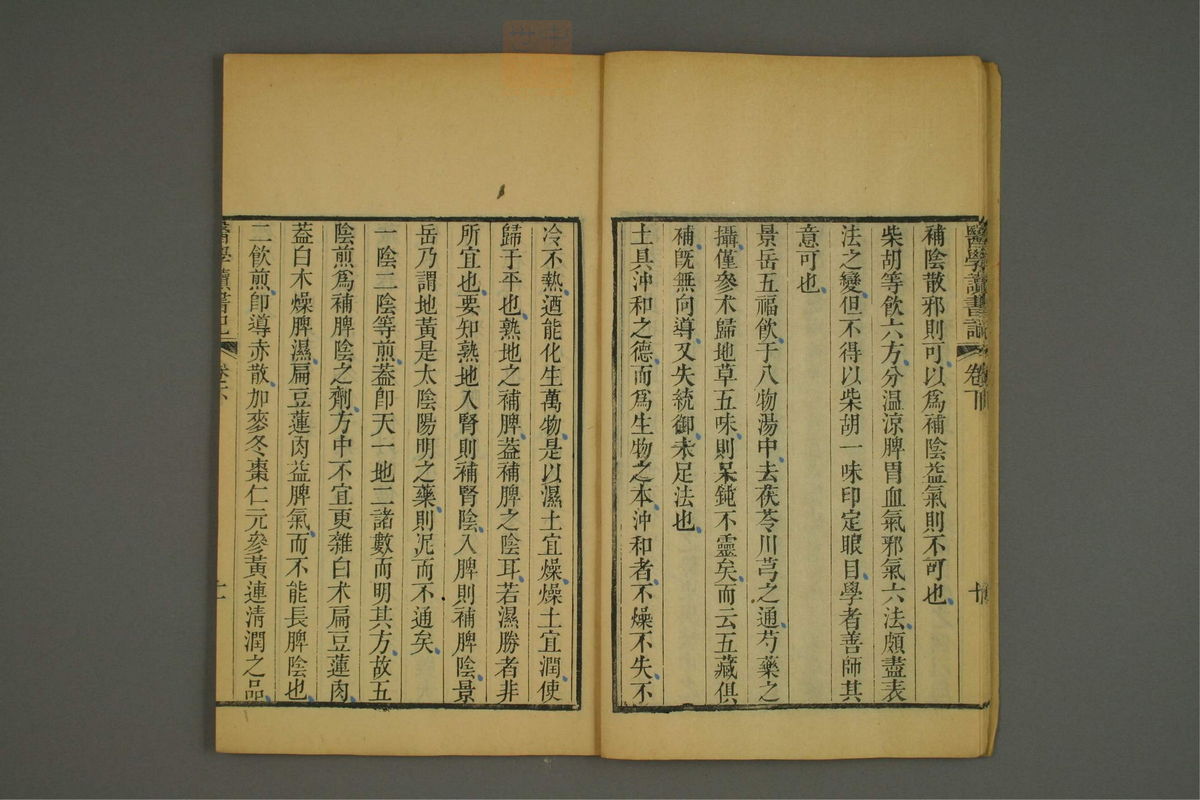 醫學讀書記
補陰散邪則可以爲補陰益氣則不可也
柴胡等飲六方分温涼脾胃血氣邪氣六法頗盡表
法之變但不得以柴胡一味印定眼目學者善師其
意可也
景岳五福飲于八物湯中去茯苓川芎之通芍藥之
攝僅參术歸地草五味則呆鈍不靈矣而云五藏俱
補旣無向導又失統御未足法也
土具沖和之德而爲生物之本沖和者不燥不失不
冷不熱迺能化生萬物是以濕土宜燥燥土宜潤使
歸于平也熟地之補脾葢補脾之陰耳若濕勝者非
所宜也要知熟地入腎則補腎陰入脾則補脾陰景
岳乃謂地黄是太陰陽明之藥則泥而不通矣
一陰二陰等煎葢卽天一地二諸數而明其方故五
陰煎爲補脾陰之劑方中不宜更雜白术扁豆蓮肉
葢白木燥脾濕扁豆蓮肉益脾氣而不能長脾陰也
二飲煎卽導赤散加麥冬棗仁元參黃連清潤之品
醫學讀書記